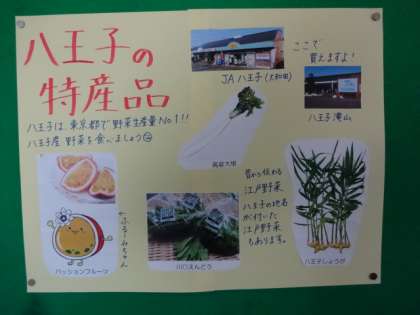 八王子の
特産品
八王子は、東京都で野菜生産量No.1!!
八王子産野菜を食べましょう
JA八王子(大和田)
ここで
買えますよ!
八王子滝山
高倉大根
昔から伝わる
江戸野菜
八王子の地名
が付いた
江戸野菜
もあります。
パッションフルーツ
川口えんどう
八王子しょうが